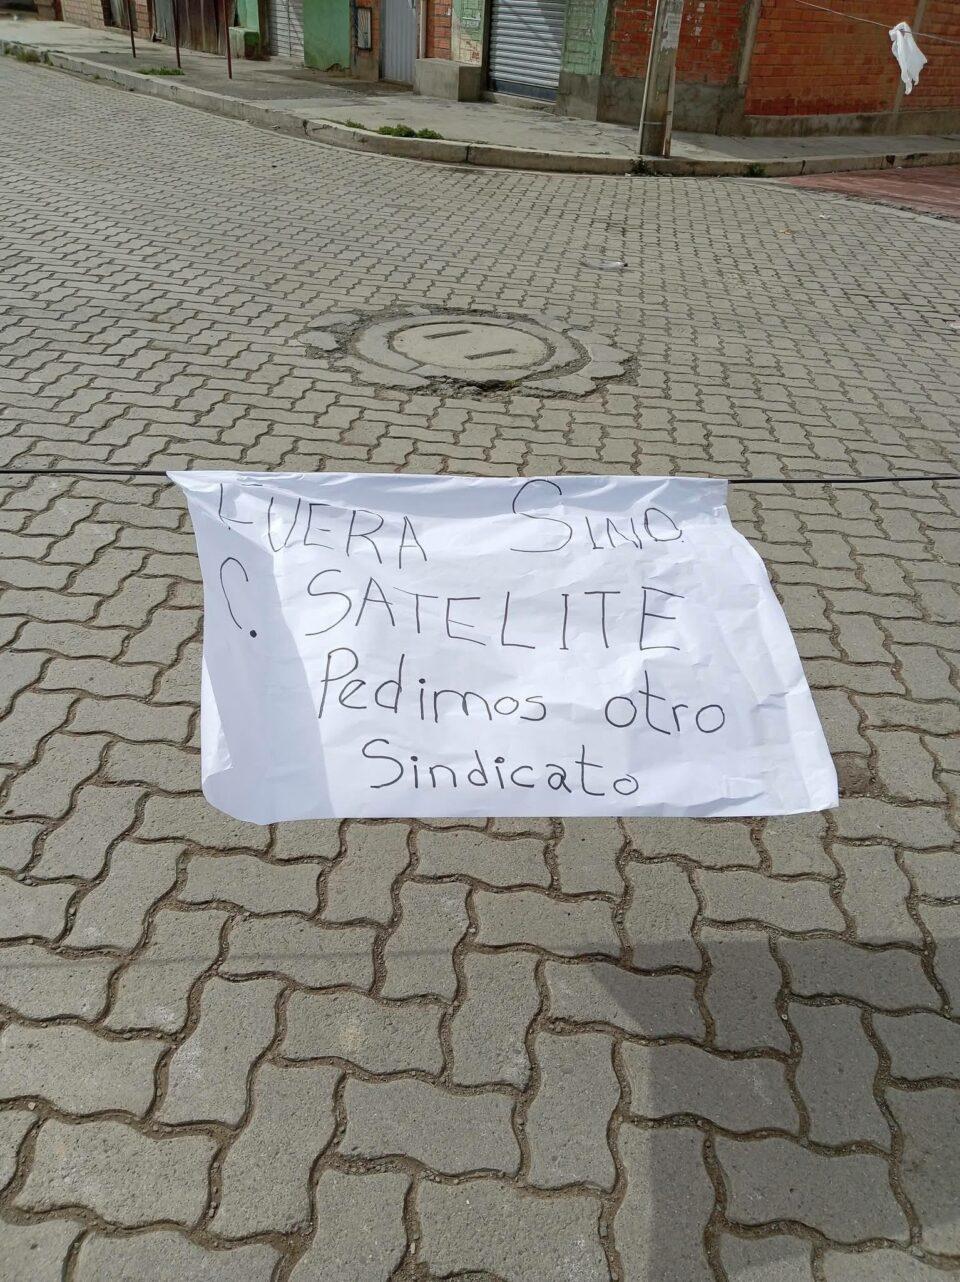 FUERA SIND.
C. SATELITE
Pedimos otro
Sindicato